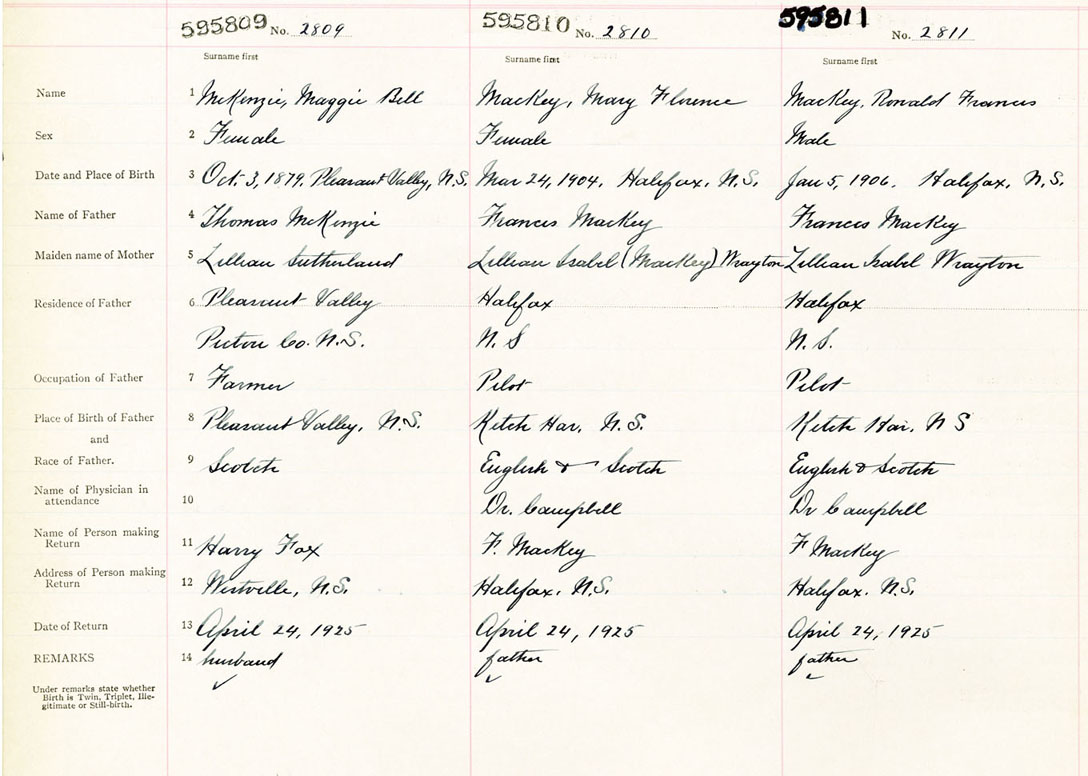 595809 No. 2809 595810 No. 2810 595811 No. 2811
Surname first Surname first Surname first
Name 1 McKenzie, Maggie Bell Mackey, Mary Florence Mackey, Ronald Francis
Sex 2 Female Female Male
Date and Place of Birth 3 Oct. 3, 1879, Pleasant Valley, N.S. Mar 24, 1904, Halifax, N.S. Jan 5, 1906. Halifax, N.S.
Name of Father 4 Thomas McKenzie Francis Mackey Francis Mackey
Maiden name of Mother 5 Lillian Sutherland Lillian Isabel (Mackey) Wrayton Lillian Isabel Wrayton
Residence of Father 6 Pleasant Valley Halifax Halifax
Pictou Co. N.S. N.S N.S.
Occupation of Father 7 Farmer Pilot Pilot
Place of Birth of Father 8 Pleasant Valley, N.S. Ketch Har, N.S. Ketch Har, N S
and
Race of Father. 9 Scotch English & Scotch English & Scotch
Name of Physician in
attendance 10 Dr. Campbell Dr Campbell
Name of Person making
Return 11 Harry Fox F. Mackey F Mackey
Address of Person making
Return 12 Westville, N.S. Halifax, N.S. Halifax. N.S.
Date of Return 13 April 24, 1925 April 24, 1925 April 24, 1925
REMARKS 14 husband father father
Under remarks state whether
Birth is Twin, Triplet, Ille-
gitimate or Still-birth.